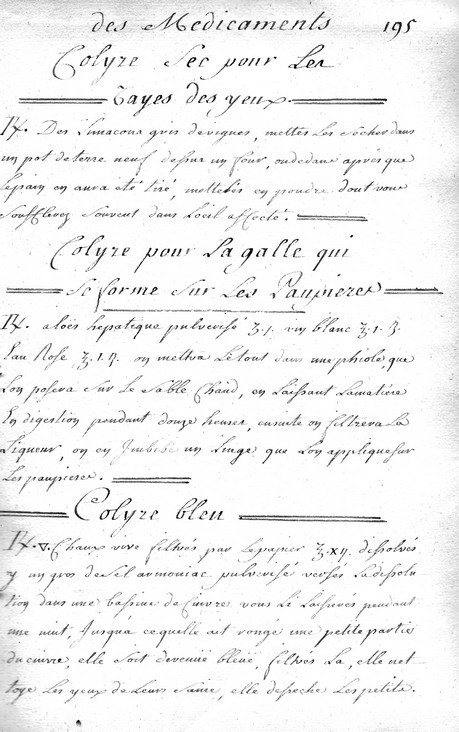 des Medicaments 195
Colyre Sec pour Les
Tayes des yeux
Des Limacons gris de vignes, mettes Les Secher dans
un pot de terre neuf dessus un four, ou dedans aprés que
Le pain en aura été tiré, mettelés en poudre dont vous
Soufflerez Souvent dans L'oeil affecté.
Colyre pour La galle qui
Se forme Sur Les Paupieres
aloës hepatique pulverisé ʒ.1. vin blanc ℥.1.
Eau Rose ℥.1. on mettra Le tout dans une phiole, que
L'on posera Sur Le Sable Chaud, en Laissant La matiere
En digestion pendant douze heures, ensuite on filtrera La
Liqueur, on en Imbibe un Linge que L'on applique Sur
Les paupieres.
Colyre bleu
Chaux vive filtrés par Le papier ℥.xij. dissolvés
y un gros de Sel armoniac pulverisé versés La dissolu
tion dans une bassine de Cuivre vous Li Laisserés pendant
une nuit, Jusqua ce quelle ait rongé une petite partie
du cuivre, elle Soit devenüe bleüe, filtrés La, elle net
toye Les yeux de Leurs Sanie, elle deseche Les petits.